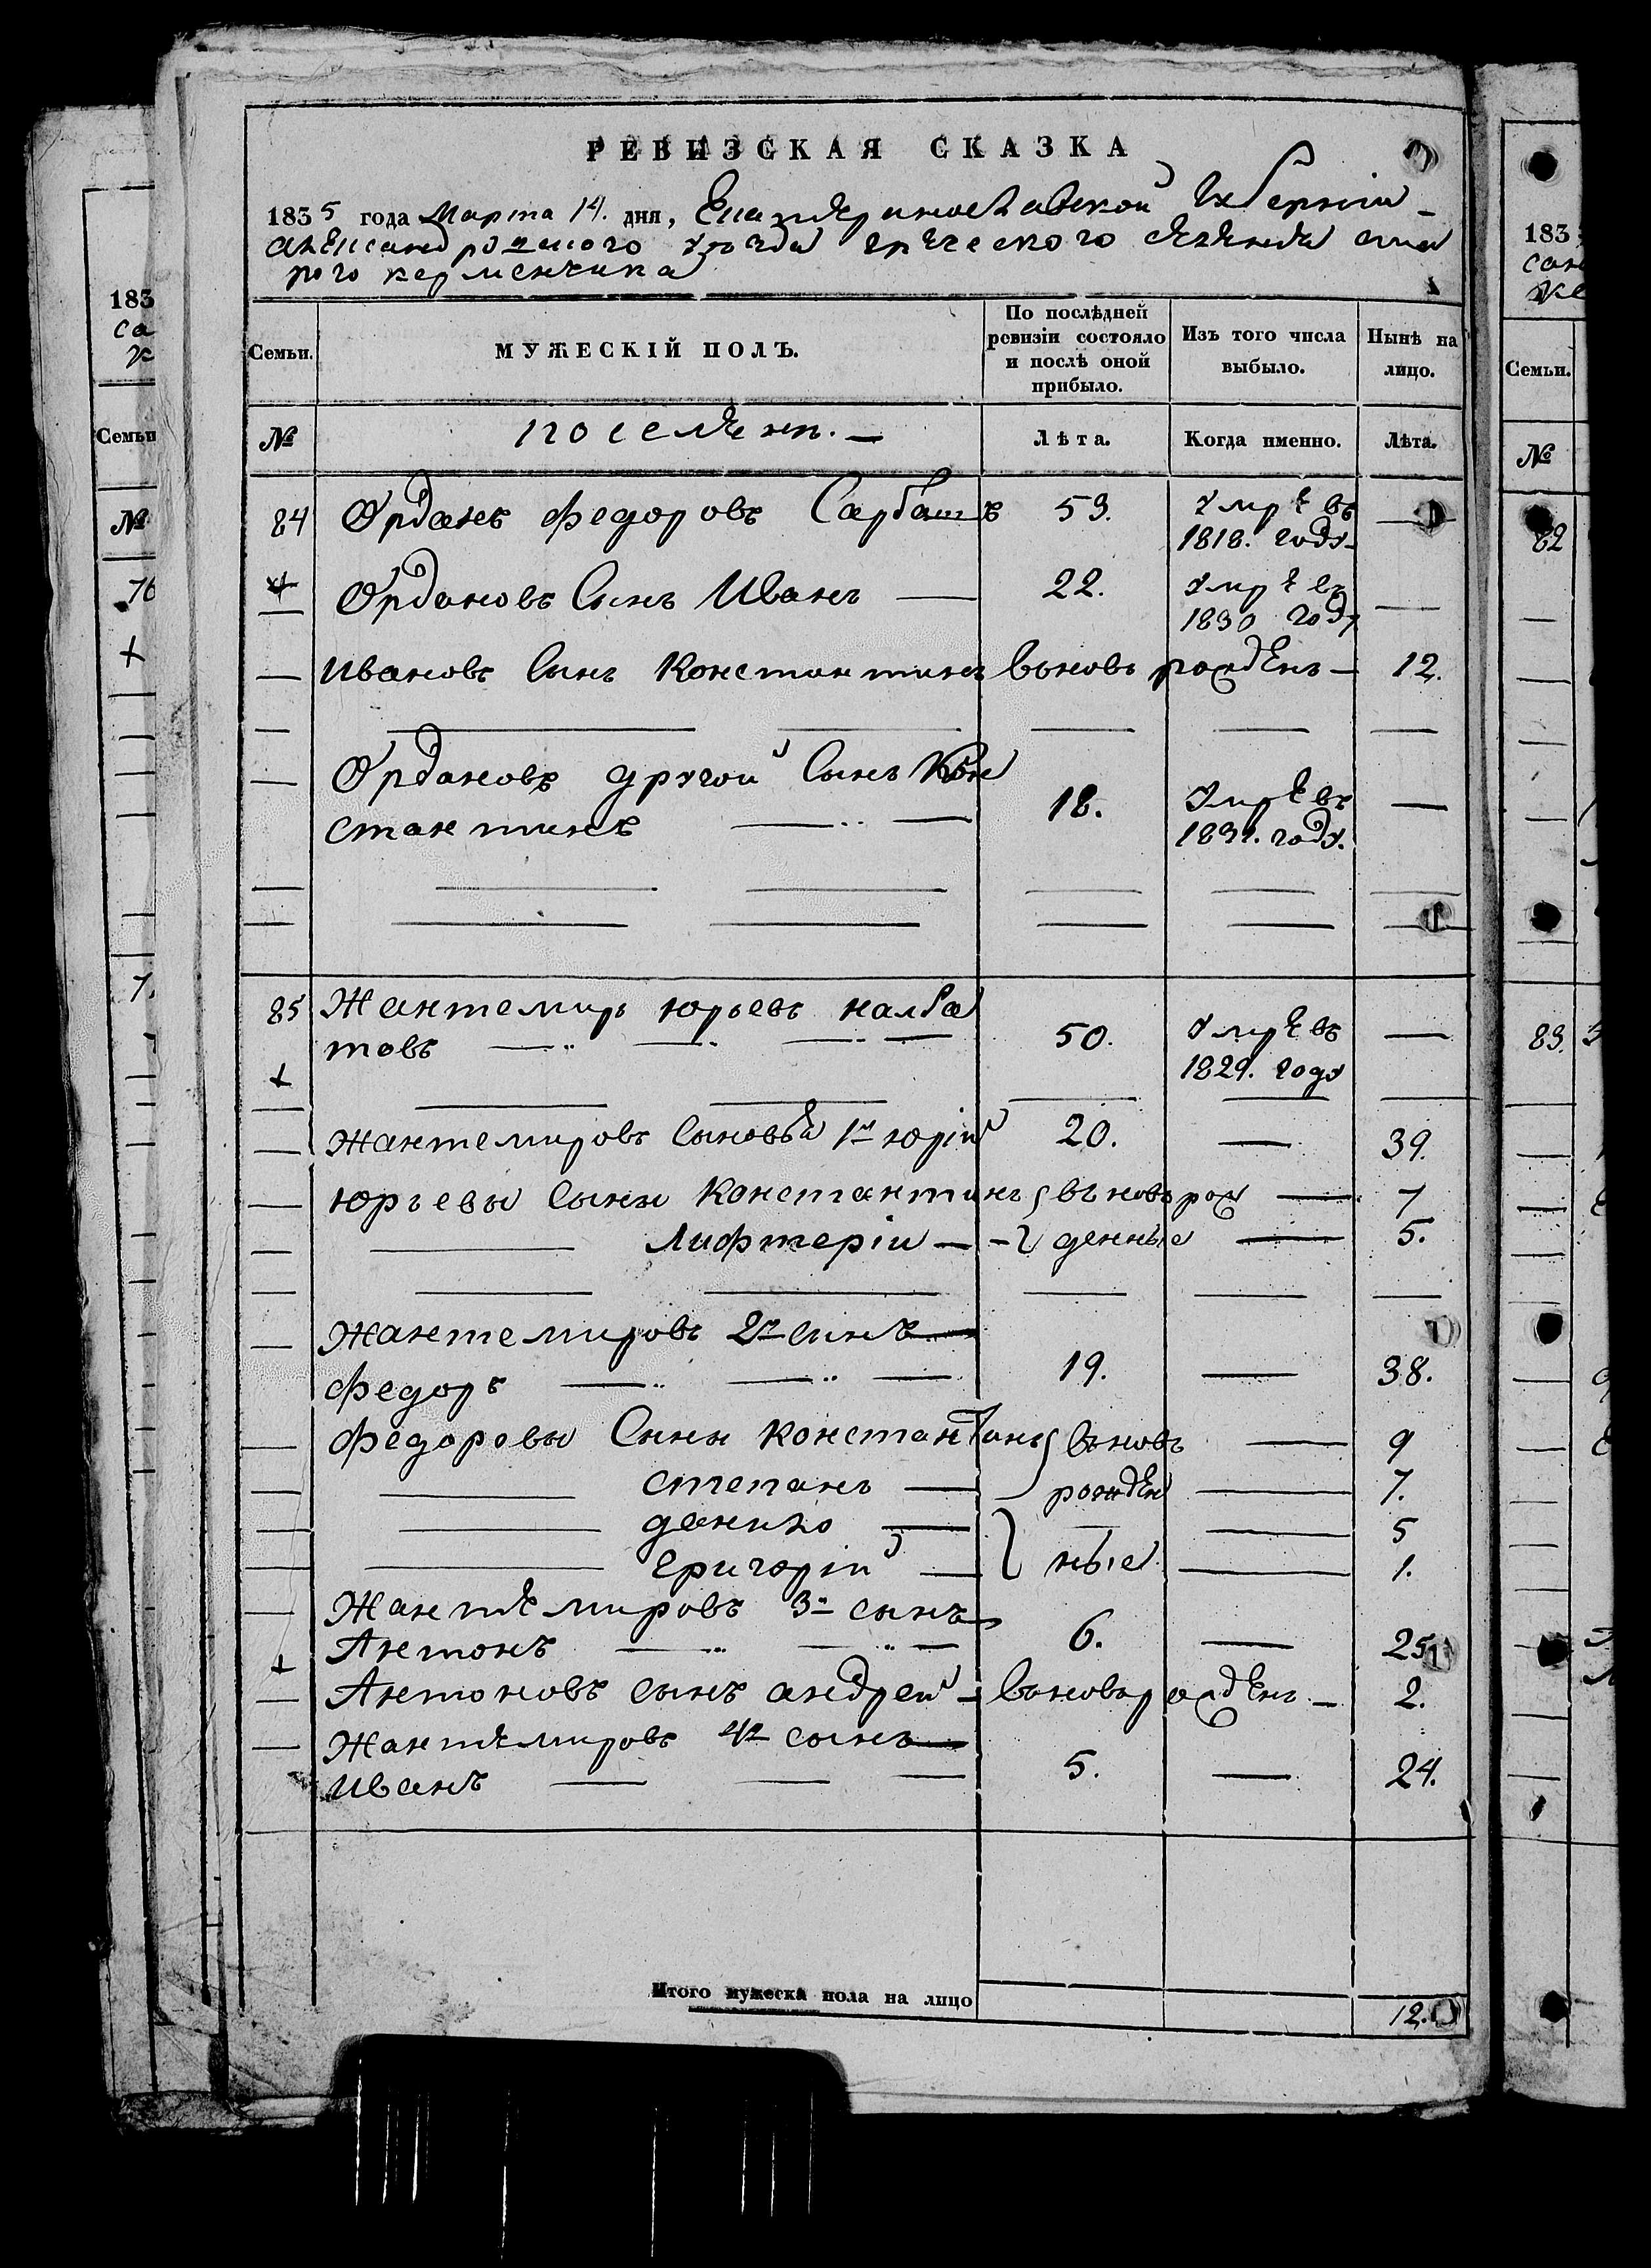 РЕВИЗСКАЯ СКАЗКА
1835 года Марта 14. дня, Екатеринославской Губернии
александровского уезда греческого селения ста
рого керменчика
Семьи.
МУЖЕСКІЙ ПОЛЪ.
По послѣдней ревизіи состояло и послѣ оной прибыло.
Изъ того числа выбыло.
Нынѣ на лицо.
№
поселяне.
Лѣта.
Когда именно.
Лѣта.
84 Орданъ федоровъ Сарбашъ 53. умре въ 1818. году
Ордановъ Сынъ Иванъ 22. умре въ 1830 году
Ивановъ Сынъ Константинъ вьновь рожденъ 12.
Ордановъ другой Сынъ Кон
стантинъ 18. умре въ 1831. году.
85 Жантемиръ юрьевъ налба
товъ 50. умре въ 1829. году
жантемировъ Сыновья 1й юрій 20. 39.
юрьевы Сыны Константинъ вьновь рож 7
Лифтерій денные 5.
жантемировъ 2й сынъ
федоръ 19. 38.
федоровы Сыны константинъ вьновь 9
степанъ рожден 7.
данило 5
григорій ные 1.
Жантемировъ 3й сынъ
Антонъ 6. 25
Антоновъ сынъ андрей вьновь рожденъ 2.
Жантемировъ 4й сынъ
иванъ 5. 24.
Итого мужеска пола на лицо 12.
183
са
Семьи
№
76
7.
183
Семьи.
№
82
83.